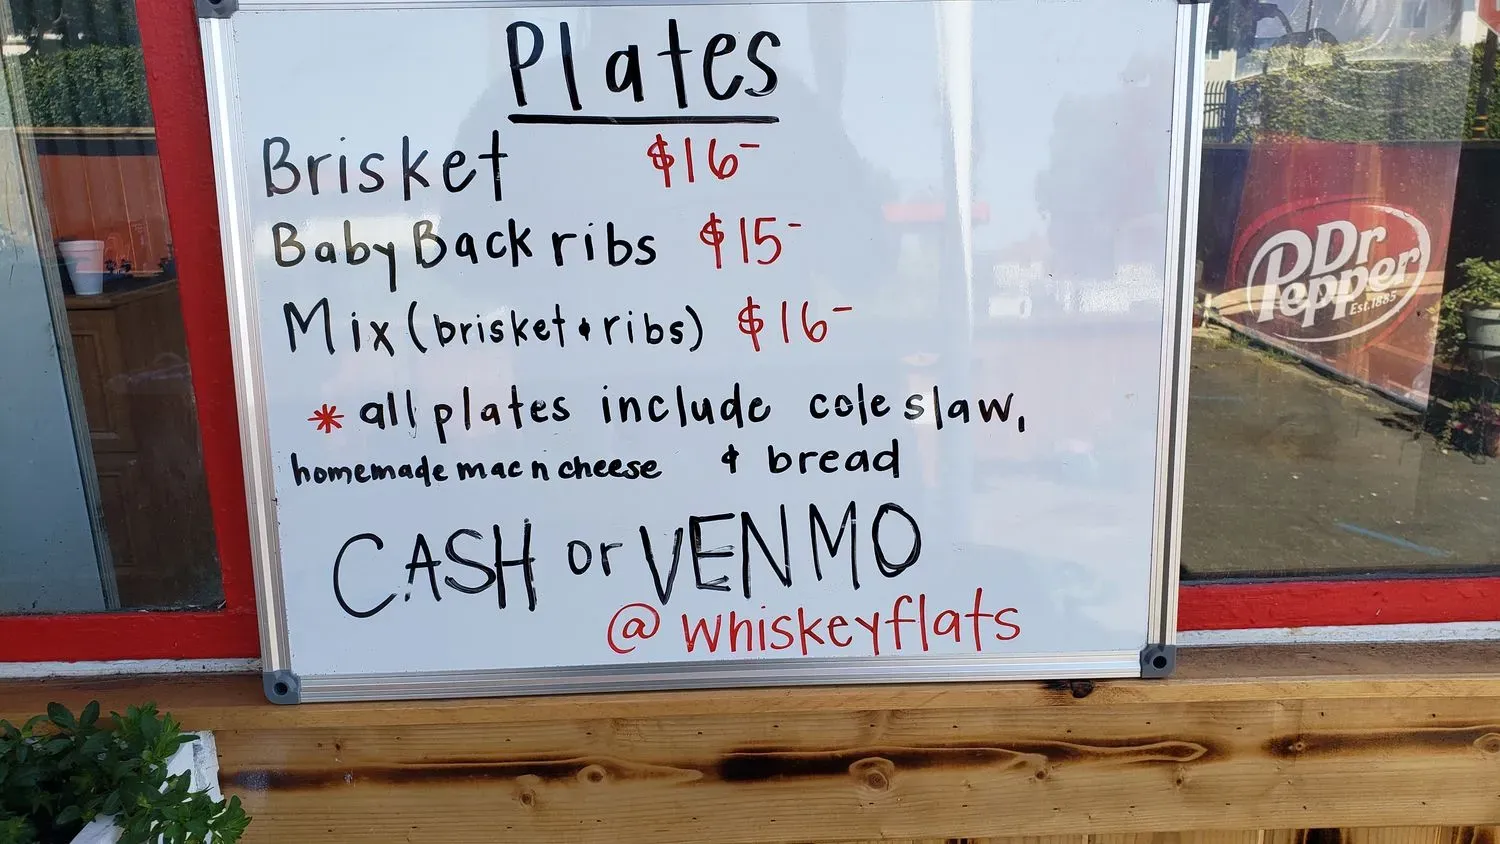 Plates
Brisket $16-
Baby Back ribs $15-
Mix (brisket & ribs) $16-
* all plates include cole slaw,
homemade mac n cheese & bread
CASH or VENMO
@whiskeyflats
Dr
Pepper
Est. 1885